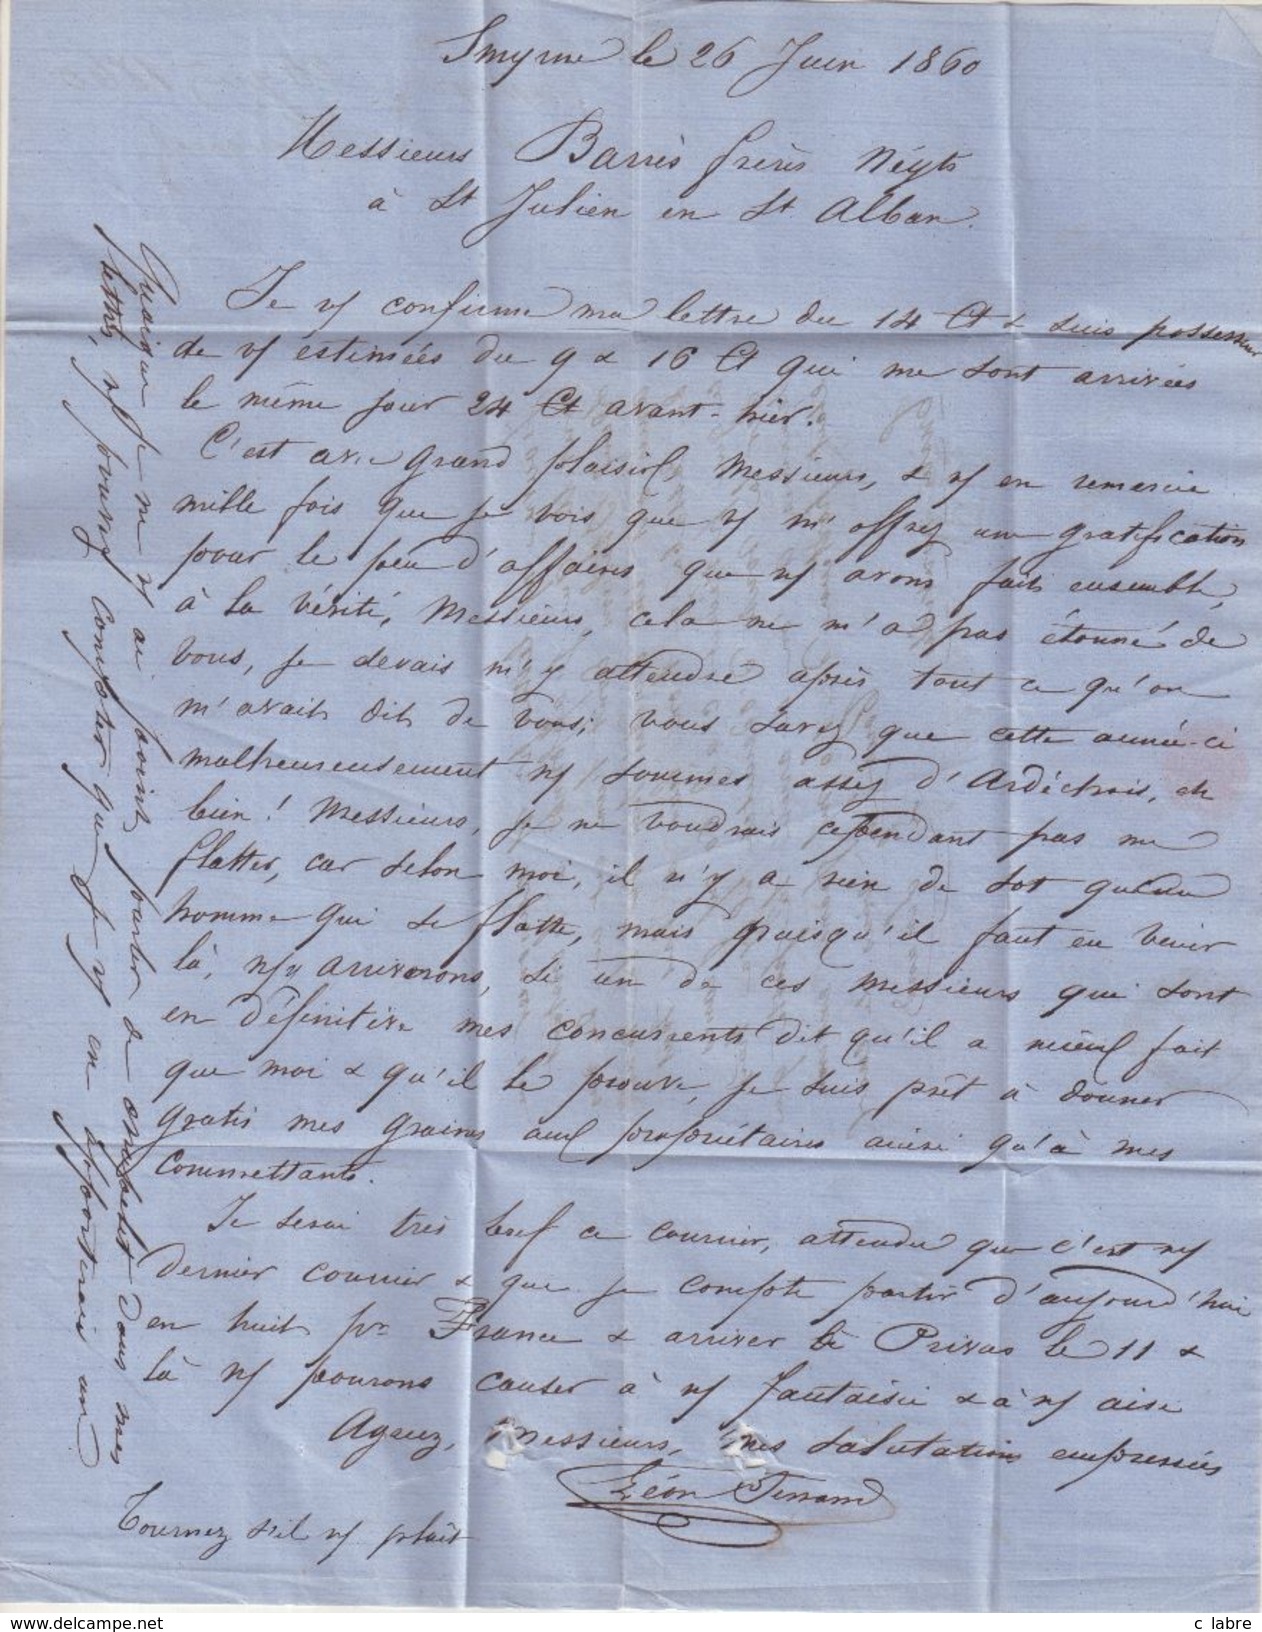 Smyrne le 26 Juin 1860
Messieurs Barrès frères Négts
à St Julien en St Alban.
Je vs confirme ma lettre du 14 Ct & suis possesseur
de vs estimées du 9 & 16 Ct qui me sont arrivées
le même jour 24 Ct avant-hier.
C'est avec grand plaisir, Messieurs, & vs en remercie
mille fois que je vois que vs m'offrez une gratification
pour le peu d'affaires que ns avons fait ensemble,
à la vérité, Messieurs, cela ne m'a pas étonné de
vous, je devais m'y attendre après tout ce qu'on
m'avait dit de vous; vous savez que cette année-ci
malheureusement ns sommes assez d'Ardéchois, eh
bien! Messieurs, je ne voudrais cependant pas me
flatter, car selon moi, il n'y a rien de sot qu'un
homme qui se flatte, mais puisqu'il faut en venir
là, ns y arriverons, si un de ces Messieurs qui sont
en définitive mes concurrents dit qu'il a mieux fait
que moi & qu'il le prouve, je suis prêt à donner
gratis mes graines aux propriétaires ainsi qu'à mes
Commettants.
Je serai très bref ce courrier, attendu que c'est ns
dernier courrier & que je compte partir d'aujourd'hui
en huit pr France & arriver à Privas le 11 &
là ns pourrons causer à ns fantaisie & à ns aise
Agréez, Messieurs, mes salutations empressées
Léon Terrand
Tournez s'il vs plait
Quoique je ne vs ai point parler de dans mes
lettres, vs pouvez compter que je vs en apporterai un
c labre
www.delcampe.net